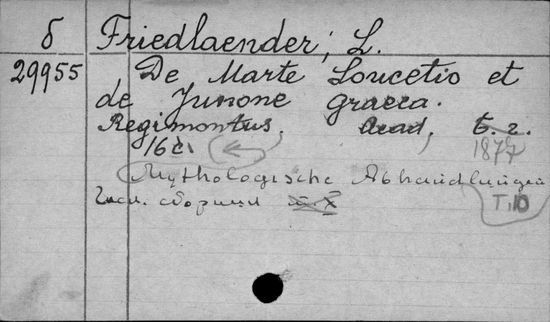 б Friedlaender, L.
29955 De Marte Loucetio et
de Junone graeca.
Regimontus. Acad. б. г.
16 с. 1877
Mythologische Abhandlungen
сборник
T. 10